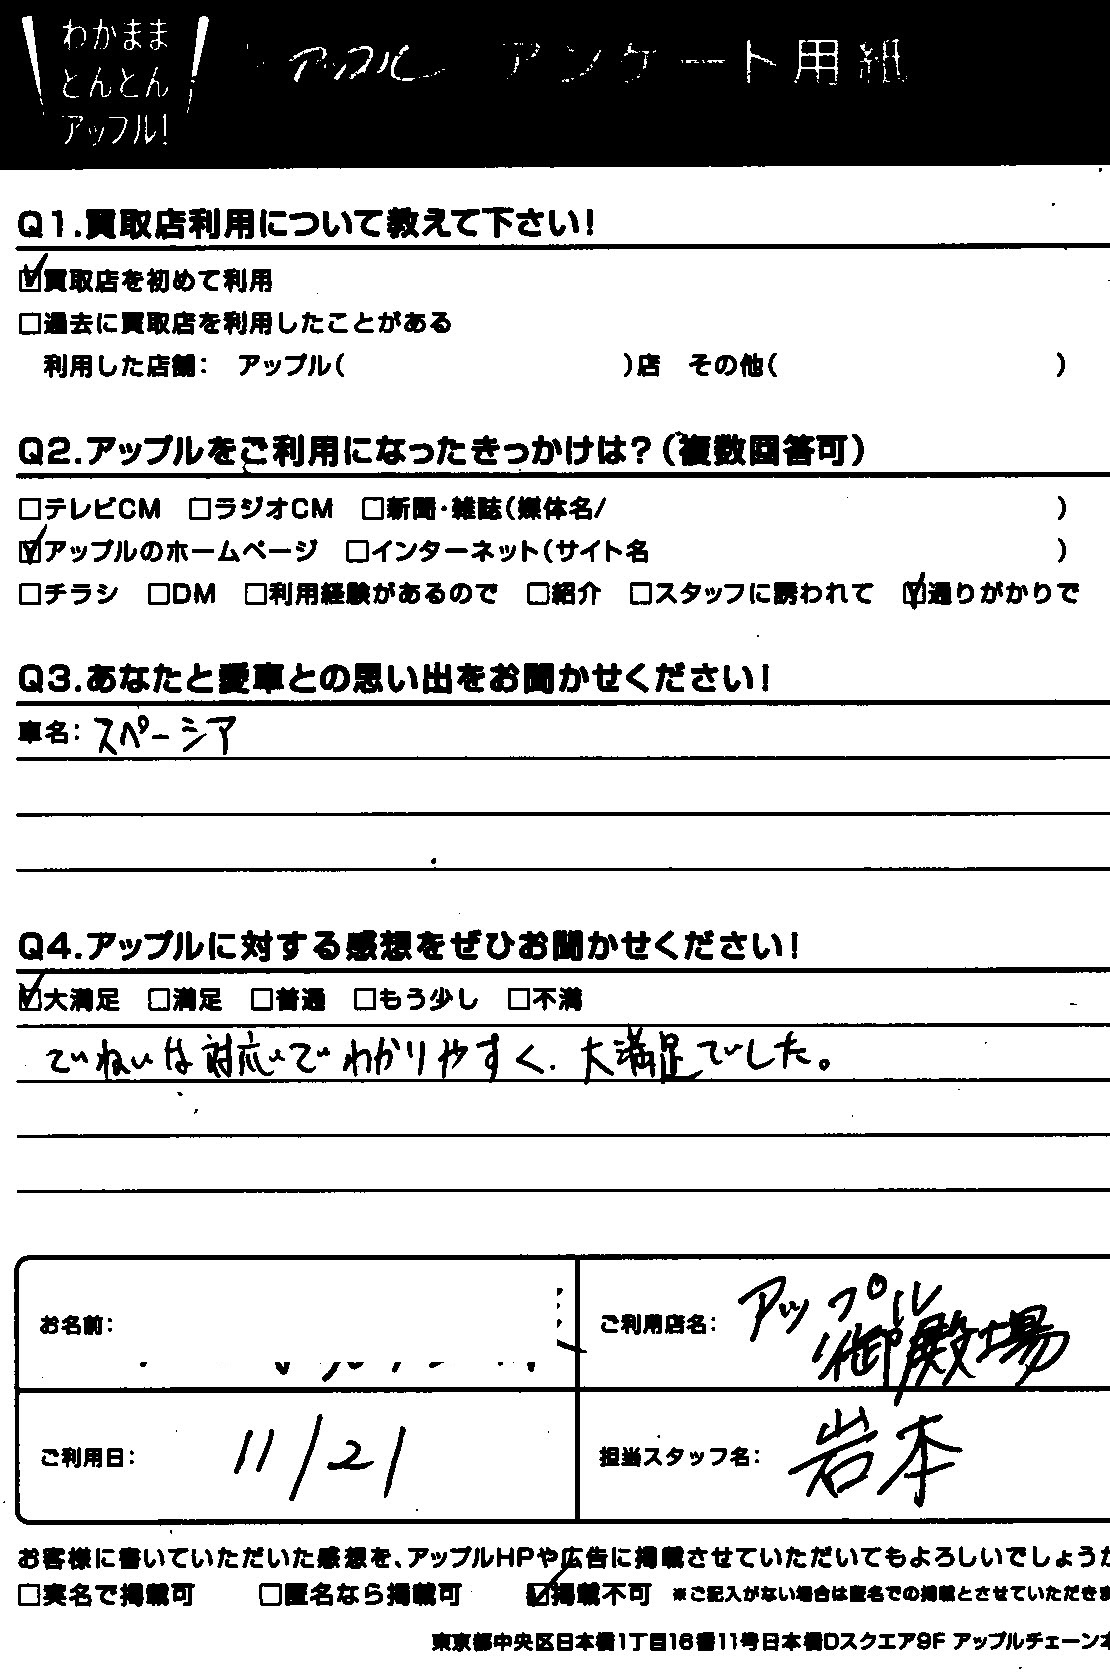 わかまま
とんとん
アップル!
アップル アンケート用紙
Q1.買取店利用について教えて下さい!
☑買取店を初めて利用
□過去に買取店を利用したことがある
利用した店舗: アップル( )店 その他( )
Q2.アップルをご利用になったきっかけは?(複数回答可)
□テレビCM □ラジオCM □新聞・雑誌(媒体名/ )
☑アップルのホームページ □インターネット(サイト名 )
□チラシ □DM □利用経験があるので □紹介 □スタッフに誘われて ☑通りがかりで
Q3.あなたと愛車との思い出をお聞かせください!
車名: スペーシア
Q4.アップルに対する感想をぜひお聞かせください!
☑大満足 □満足 □普通 □もう少し □不満
ていねいな対応でわかりやすく、大満足でした。
お名前:
ご利用店名: アップル
御殿場
ご利用日: 11/21
担当スタッフ名: 岩本
お客様に書いていただいた感想を、アップルHPや広告に掲載させていただいてもよろしいでしょうか
□実名で掲載可 □匿名なら掲載可 ☑掲載不可 ※ご記入がない場合は匿名での掲載とさせていただきま
東京都中央区日本橋1丁目16番11号日本橋Dスクエア9F アップルチェーン本